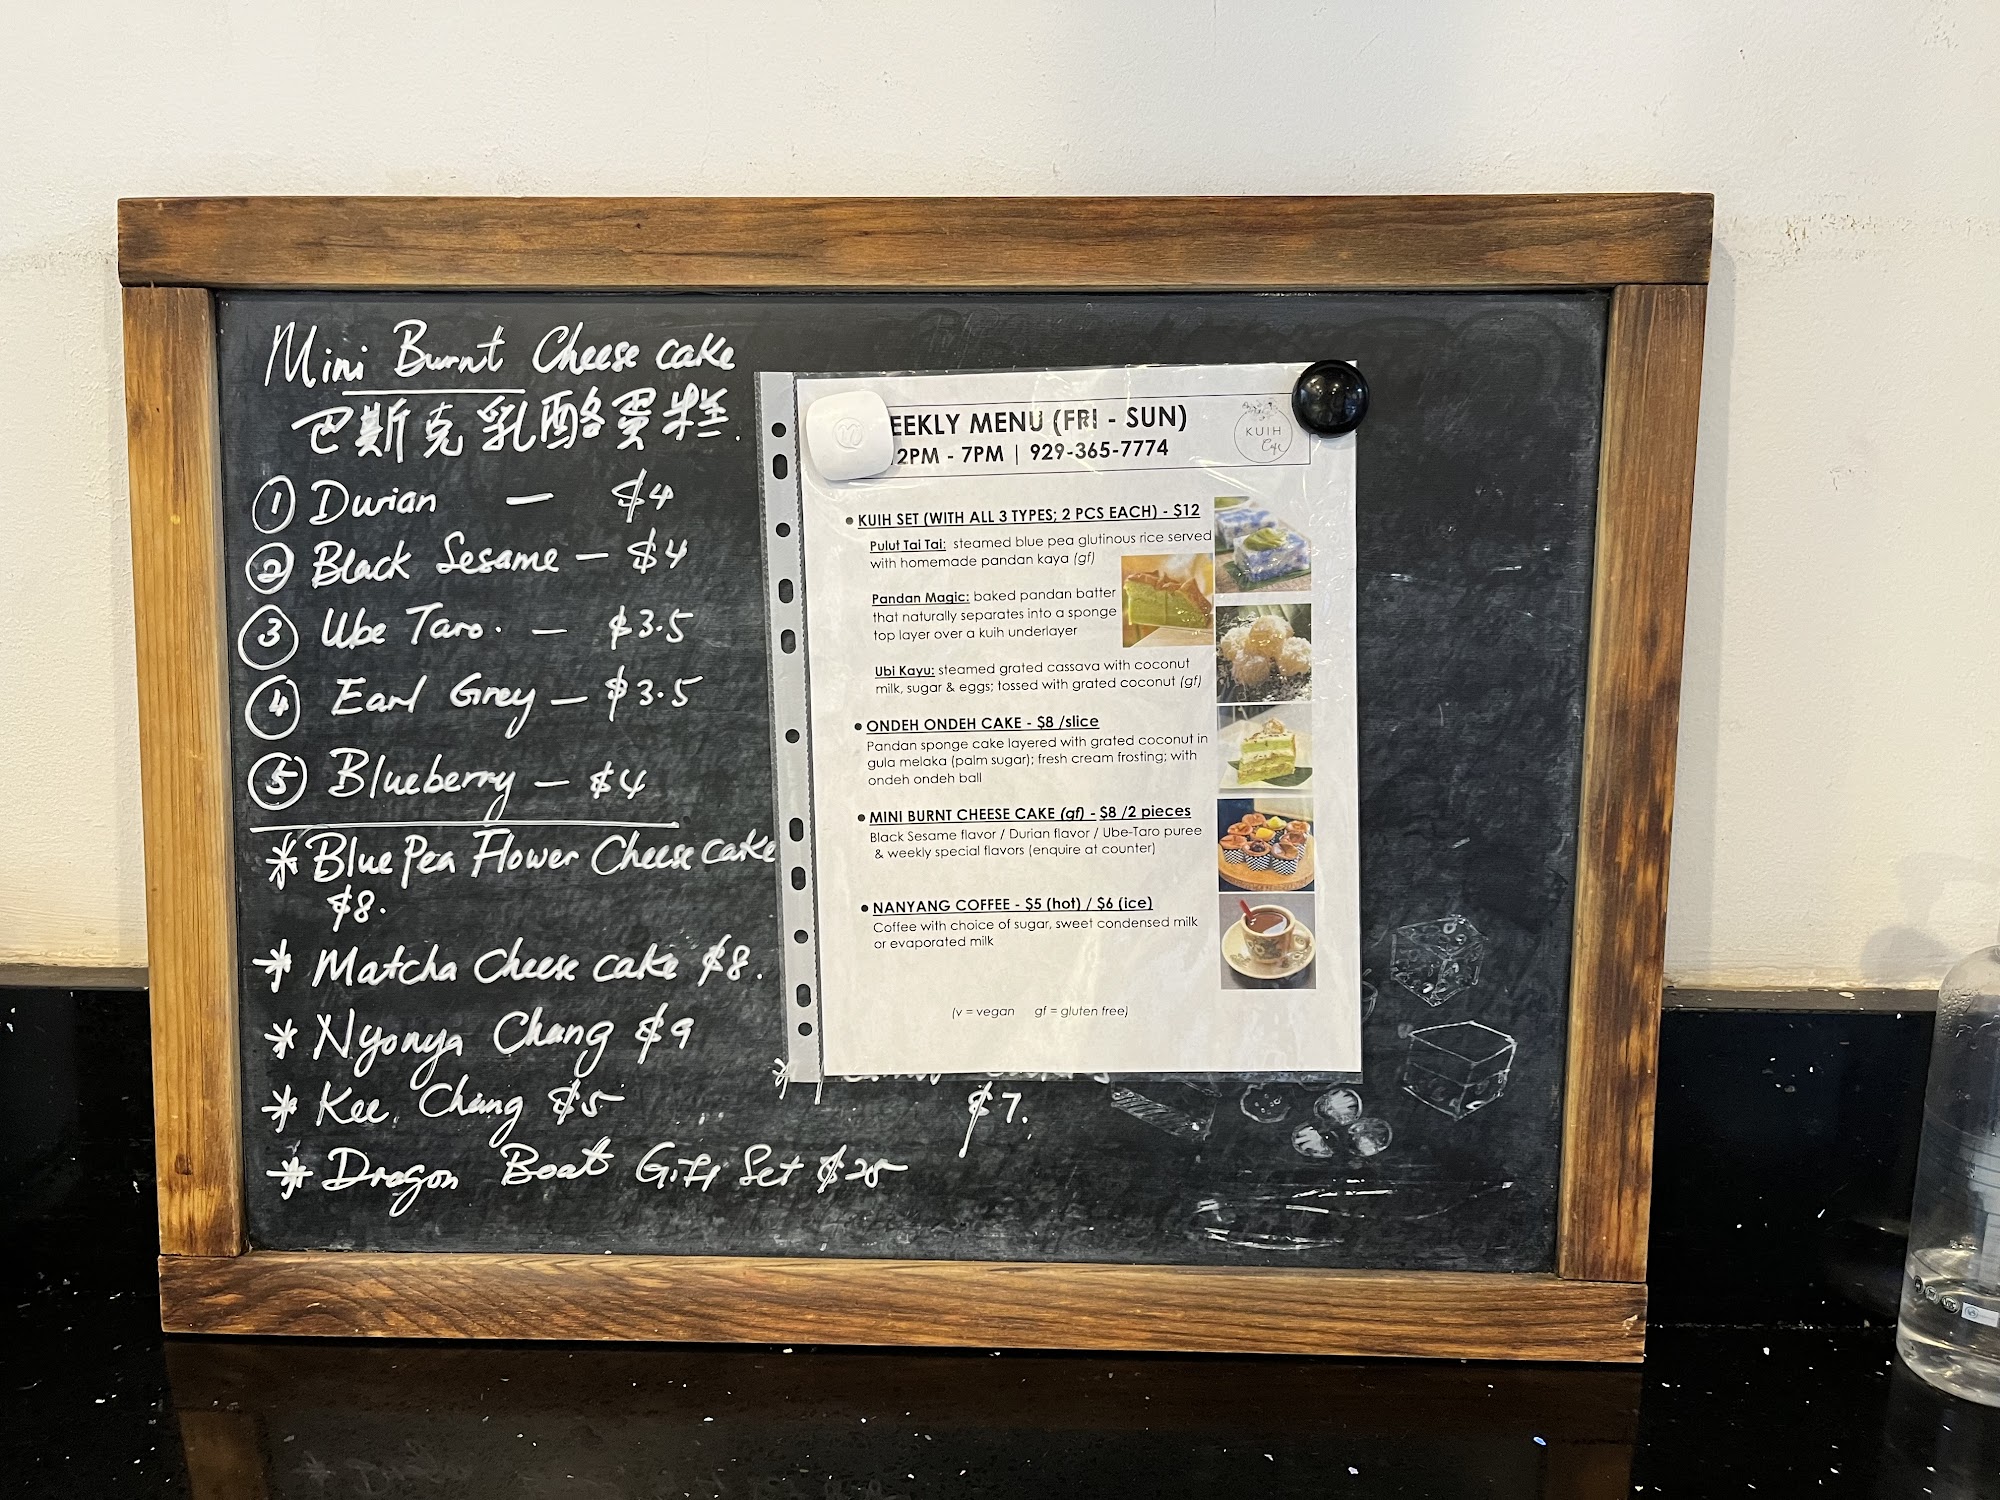 Mini Burnt Cheese cake
巴斯克乳酪蛋糕.
① Durian — $4
② Black Sesame — $4
③ Ube Taro. — $3.5
④ Earl Grey — $3.5
⑤ Blueberry — $4
* Blue Pea Flower Cheese cake
$8.
* Matcha Cheese cake $8.
* Nyonya Chang $9
* Kee Chang $5
* Dragon Boat Gift Set $25
$7.
EEKLY MENU (FRI - SUN)
2PM - 7PM | 929-365-7774
KUIH
Cafe
• KUIH SET (WITH ALL 3 TYPES; 2 PCS EACH) - $12
Pulut Tai Tai: steamed blue pea glutinous rice served
with homemade pandan kaya (gf)
Pandan Magic: baked pandan batter
that naturally separates into a sponge
top layer over a kuih underlayer
Ubi Kayu: steamed grated cassava with coconut
milk, sugar & eggs; tossed with grated coconut (gf)
• ONDEH ONDEH CAKE - $8 /slice
Pandan sponge cake layered with grated coconut in
gula melaka (palm sugar); fresh cream frosting; with
ondeh ondeh ball
• MINI BURNT CHEESE CAKE (gf) - $8 /2 pieces
Black Sesame flavor / Durian flavor / Ube-Taro puree
& weekly special flavors (enquire at counter)
• NANYANG COFFEE - $5 (hot) / $6 (ice)
Coffee with choice of sugar, sweet condensed milk
or evaporated milk
(v = vegan gf = gluten free)